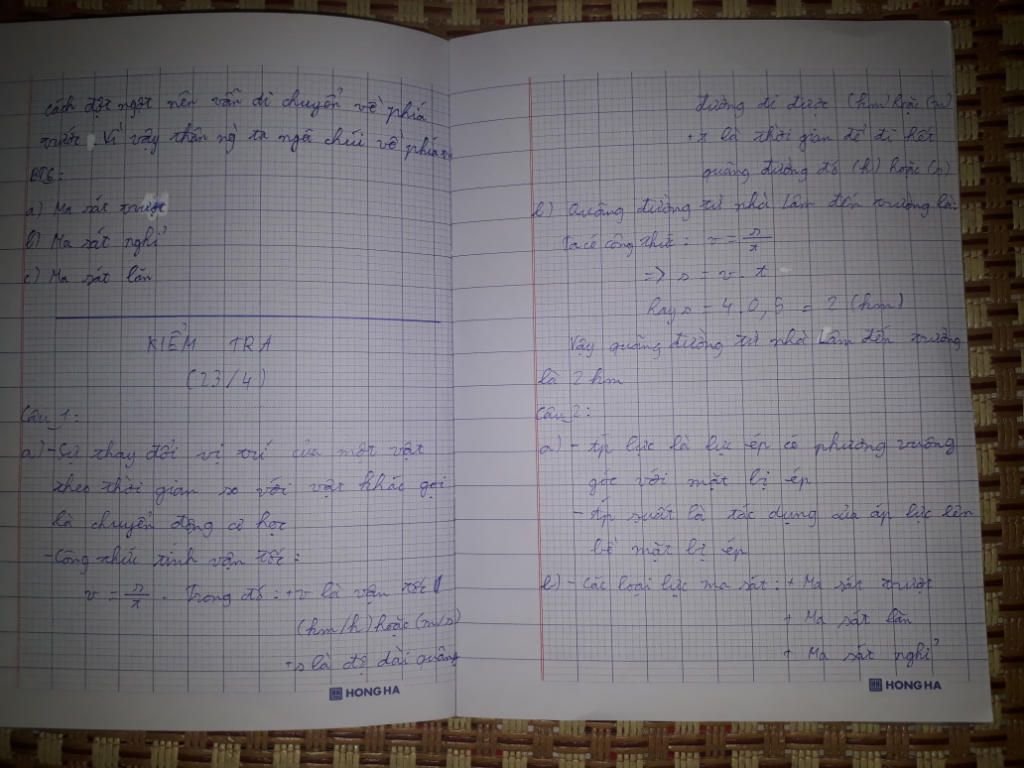 cách đột ngột nên vẫn di chuyển về phía
trước. Vì vậy thân ng` ta ngã chúi về phía tr
BT6:
a) Ma sát trượt
b) Ma sát nghỉ
c) Ma sát lăn
KIỂM TRA
(23/4)
Câu 1:
a) - Sự thay đổi vị trí của một vật
theo thời gian so với vật khác gọi
là chuyển động cơ học
- Công thức tính vận tốc:
v = s/t. Trong đó: + v là vận tốc
(km/h) hoặc (m/s)
+ s là độ dài quãng
HONG HA
đường đi được (km) hoặc (m)
+ t là thời gian để đi hết
quãng đường đó (h) hoặc (s)
b) Quãng đường từ nhà Lâm đến trường là:
Ta có công thức: v = s/t
=> s = v. t
Hay s = 4. 0,5 = 2 (km)
Vậy quãng đường từ nhà Lâm đến trường
là 2 km
Câu 2:
a) - Áp lực là lực ép có phương vuông
góc với mặt bị ép
- Áp suất là tác dụng của áp lực lên
bề mặt bị ép
b) - Các loại lực ma sát: + Ma sát trượt
+ Ma sát lăn
+ Ma sát nghỉ
HONG HA